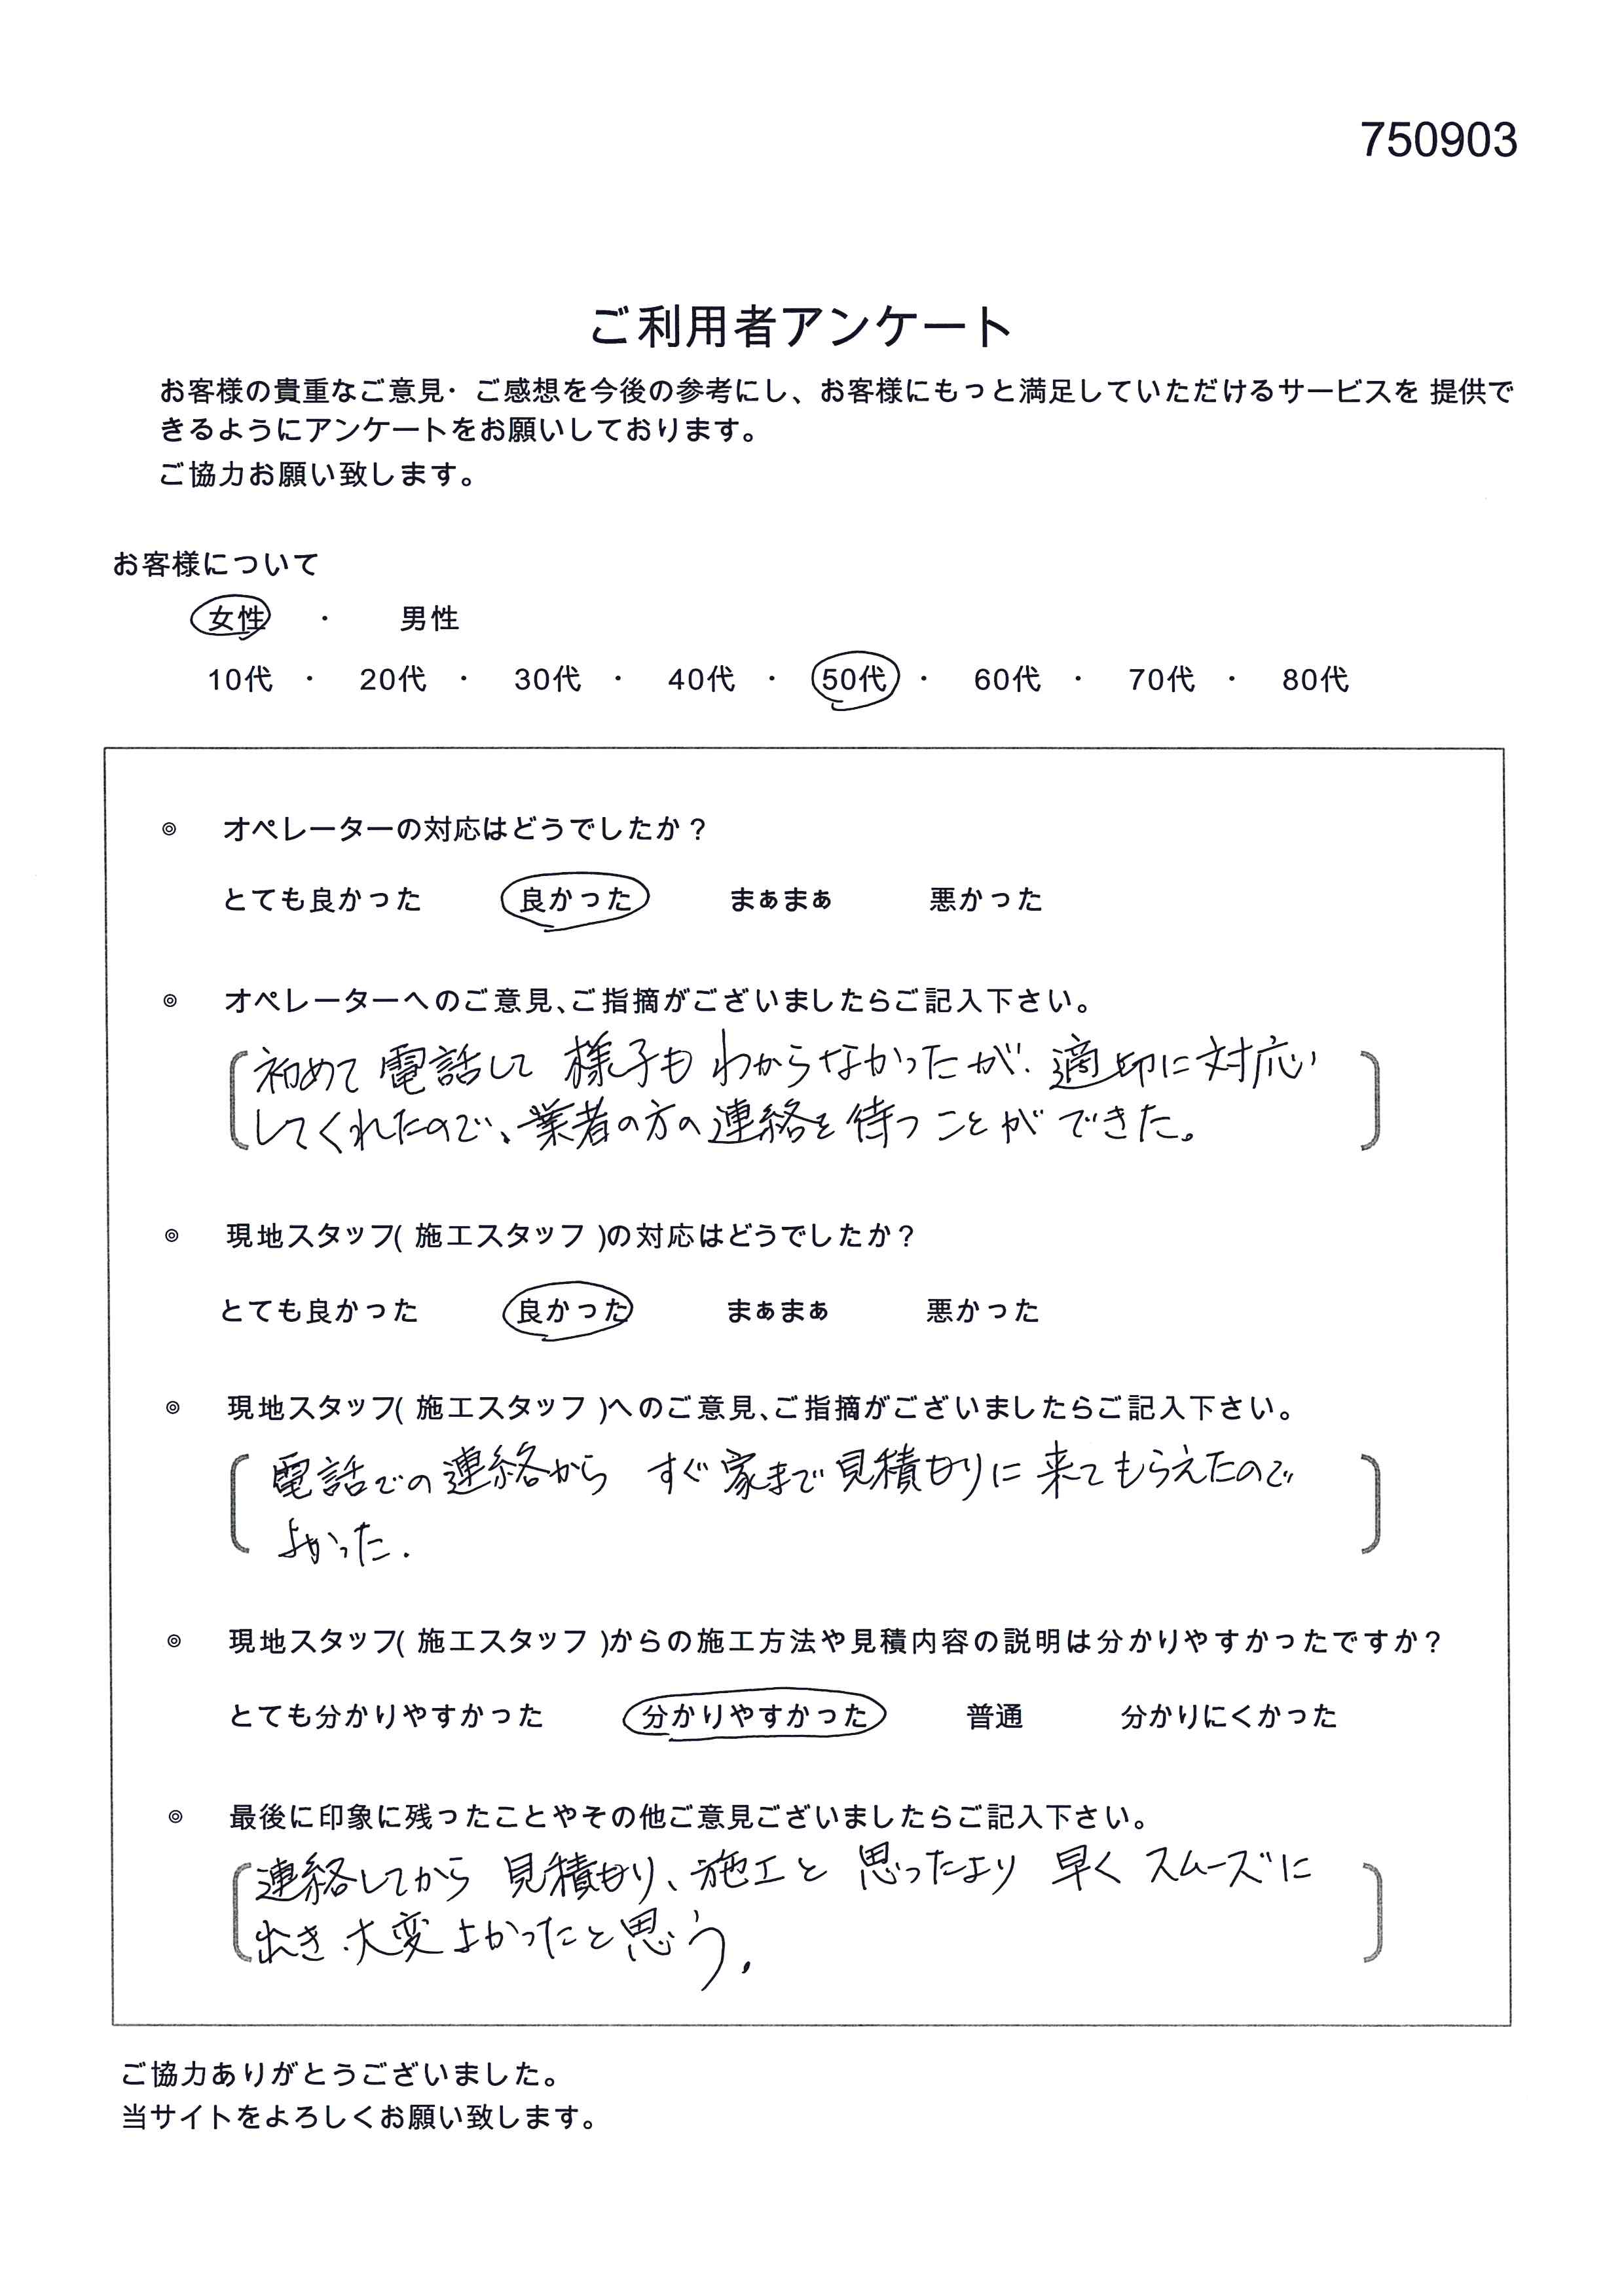 750903
ご利用者アンケート
お客様の貴重なご意見・ご感想を今後の参考にし、お客様にもっと満足していただけるサービスを 提供で
きるようにアンケートをお願いしております。
ご協力お願い致します。
お客様について
女性 ・ 男性
10代 ・ 20代 ・ 30代 ・ 40代 ・ 50代 ・ 60代 ・ 70代 ・ 80代
◎ オペレーターの対応はどうでしたか？
とても良かった 良かった まぁまぁ 悪かった
◎ オペレーターへのご意見、ご指摘がございましたらご記入下さい。
初めて電話して 様子も わからなかったが、適切に対応
してくれたので、業者の方の連絡を待つことができた。
◎ 現地スタッフ( 施工スタッフ )の対応はどうでしたか？
とても良かった 良かった まぁまぁ 悪かった
◎ 現地スタッフ( 施工スタッフ )へのご意見、ご指摘がございましたらご記入下さい。
電話での連絡から すぐ家まで見積もりに来てもらえたので
よかった.
◎ 現地スタッフ( 施工スタッフ )からの施工方法や見積内容の説明は分かりやすかったですか？
とても分かりやすかった 分かりやすかった 普通 分かりにくかった
◎ 最後に印象に残ったことやその他ご意見ございましたらご記入下さい。
連絡してから 見積もり、施工と 思ったより 早く スムーズに
出来、大変よかったと思う.
ご協力ありがとうございました。
当サイトをよろしくお願い致します。